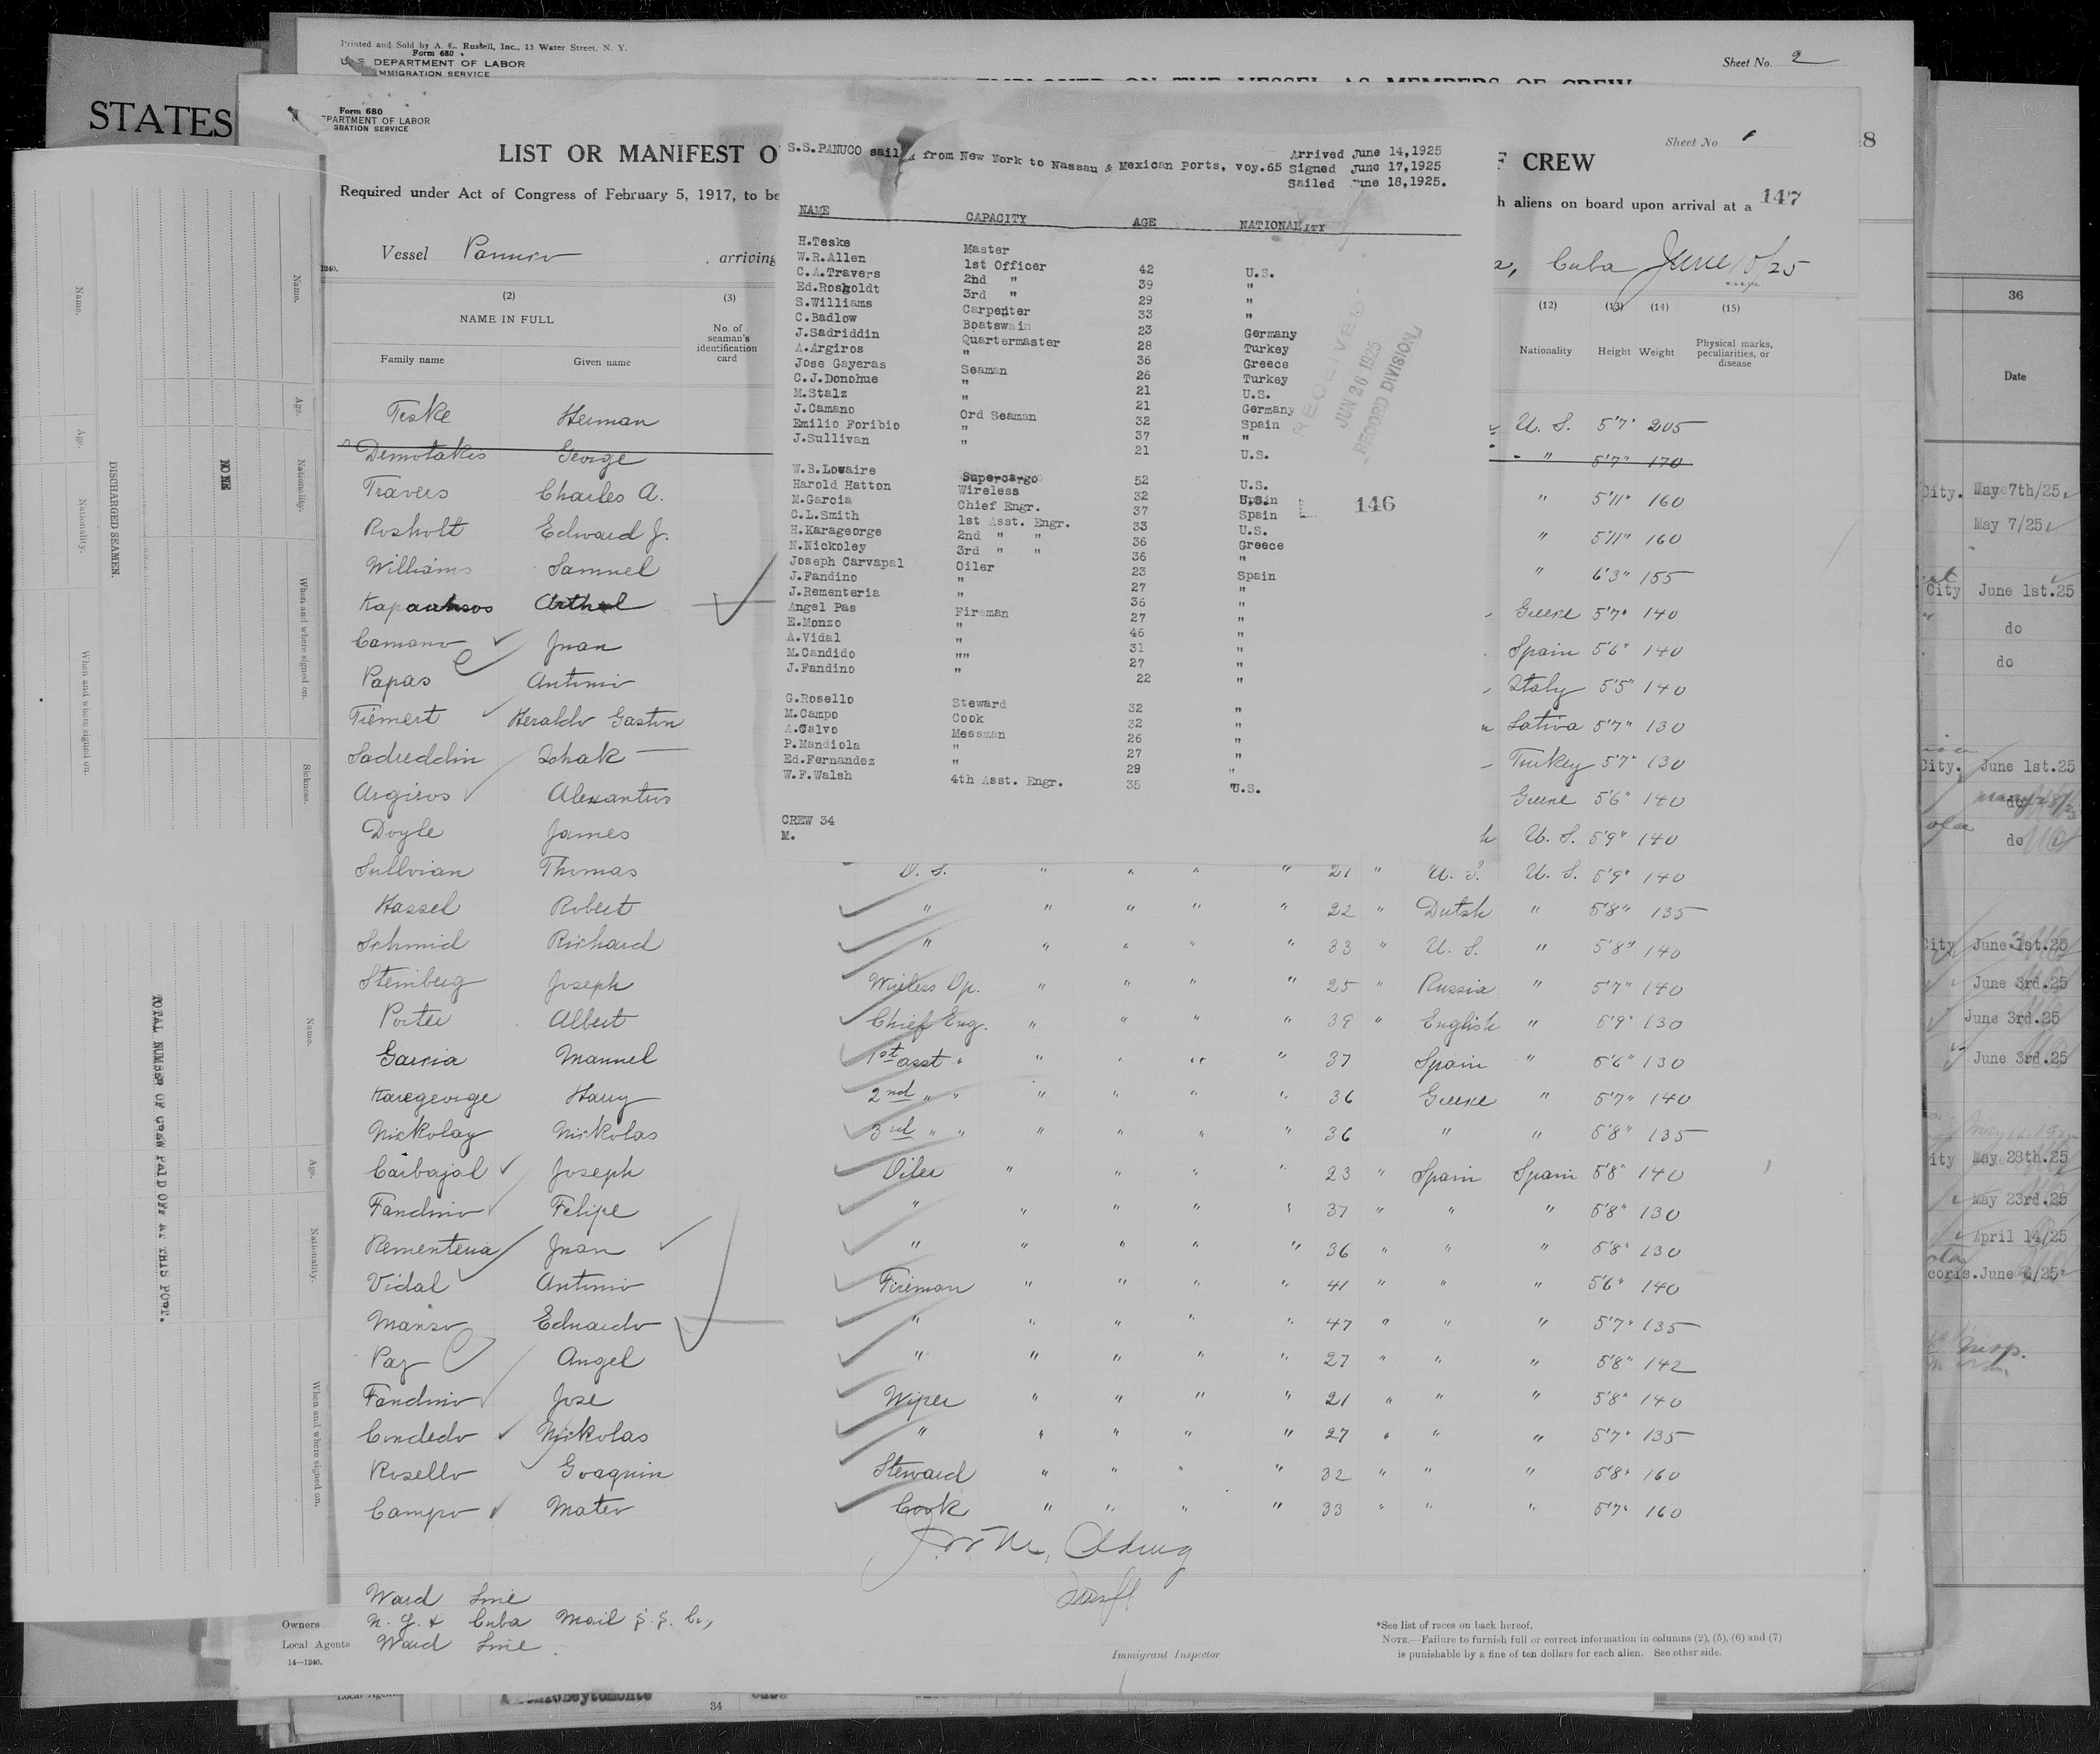 Printed and Sold by A. E. Russell, Inc., 13 Water Street, N. Y.
Form 680
U. S. DEPARTMENT OF LABOR
IMMIGRATION SERVICE
Sheet No. 2
EMPLOYED ON THE VESSEL AS MEMBERS OF CREW
STATES
Form 680
DEPARTMENT OF LABOR
GRATION SERVICE
Sheet No 1
8
LIST OR MANIFEST O
F CREW
Required under Act of Congress of February 5, 1917, to be
h aliens on board upon arrival at a
147
Vessel Panuco , arriving
a, Cuba June 10/25
1240.
(2) (3) (12) (13) (14) (15)
NAME IN FULL
No. of seaman's identification card
Family name Given name
Nationality Height Weight Physical marks, peculiarities, or disease
S.S.PANUCO sailed from New York to Nassau & Mexican Ports, voy.65
Arrived June 14,1925
Signed June 17,1925
Sailed June 18,1925.
NAME CAPACITY AGE NATIONALITY
H.Teske Master
W.R.Allen 1st Officer 42 U.S.
C.A.Travers 2nd " 39 "
Ed.Rosholdt 3rd " 29 "
S.Williams Carpenter 33 "
C.Badlow Boatswain 23 Germany
J.Sadriddin Quartermaster 28 Turkey
A.Argiros " 36 Greece
Jose Gayeras Seaman 26 Turkey
C.J.Donohue " 21 U.S.
M.Stalz " 21 Germany
J.Camano Ord Seaman 32 Spain
Emilio Foribio " 37 "
J.Sullivan " 21 U.S.
W.B.Lowaire Supercargo 52 U.S.
Harold Hatton Wireless 32 U.S.
M.Garcia Chief Engr. 37 Spain
C.L.Smith 1st Asst. Engr. 33 U.S.
H.Karageorge 2nd " " 36 Greece
N.Nickoley 3rd " " 36 "
Joseph Carvapal Oiler 23 Spain
J.Fandino " 27 "
J.Rementeria " 36 "
Angel Pas Fireman 27 "
E.Monzo " 46 "
A.Vidal " 31 "
M.Candido "" 27 "
J.Fandino " 22 "
G.Rosello Steward 32 "
M.Campo Cook 32 "
A.Calvo Messman 26 "
P.Mandiola " 27 "
Ed.Fernandez " 29 "
W.F.Walsh 4th Asst. Engr. 35 "U.S.
CREW 34
M.
RECEIVED
JUN 26 1925
RECORD DIVISION
146
Teske Herman U. S. 5'7" 205
Demotakis George " 5'7" 170
Travers Charles A. " 5'11" 160
Rosholt Edward J. " 5'11" 160
Williams Samuel " 6'3" 155
Greese 5'7" 140
Camano Juan Spain 5'6" 140
Papas Antonio Italy 5'5" 140
Tiemert Heraldo Gaston Lativa 5'7" 130
Sadreddin Ishak Turkey 5'7" 130
Argiros Alexantros Greese 5'6" 140
Doyle James U. S. 5'9" 140
Sullvian Thomas O. S. " " " " 21 " U. S. U. S. 5'9" 140
Hassel Robert " " " " " 22 " Dutsh " 5'8" 135
Schmid Richard " " " " " 33 " U. S. " 5'8" 140
Steinberg Joseph Wireless Op. " " " " 25 " Russia " 5'7" 140
Porter Albert Chief Eng. " " " " 39 " English " 5'9" 130
Garcia Manuel 1st asst " " " " " 37 Spain " 5'6" 130
Karegeorge Harry 2nd " " " " " " 36 Greese " 5'7" 140
Nickolay Nickolas 3rd " " " " " " 36 " " 5'8" 135
Carbajal Joseph Oiler " " " " 23 " Spain Spain 5'8" 140
Fandino Felipe " " " " " 37 " " " 5'8" 130
Rementeria Juan " " " " " 36 " " " 5'8" 130
Vidal Antonio Fireman " " " " 41 " " " 5'6" 140
Manso Eduardo " " " " " 47 " " " 5'7" 135
Paz Angel " " " " " 27 " " " 5'8" 142
Fandino Jose Wiper " " " " 21 " " " 5'8" 140
Condedo Nickolas " " " " " 27 " " " 5'7" 135
Rosello Goaquin Steward " " " " 32 " " " 5'8" 160
Campo Mateo Cook " " " " 33 " " " 5'7" 160
Ward Line
Owners N. Y. & Cuba Mail S. S. Co,
Local Agents Ward Line
14—1240.
Immigrant Inspector
*See list of races on back hereof.
NOTE.—Failure to furnish full or correct information in columns (2), (5), (6) and (7)
is punishable by a fine of ten dollars for each alien. See other side.
34
Name. Age. Nationality. When and where signed on.
DISCHARGED SEAMEN.
NONE
Name. Age. Nationality. When and where signed on. Sickness.
TOTAL NUMBER OF CREW PAID OFF AT THIS PORT.
Name. Age. Nationality. When and where signed on.
36
Date
City. May 7th/25
May 7/25
City June 1st.25
do
do
City. June 1st.25
do
do
City June 1st.25
June 3rd.25
June 3rd.25
June 3rd.25
ity May 28th.25
May 23rd.25
April 14/25
coris. June 6/25